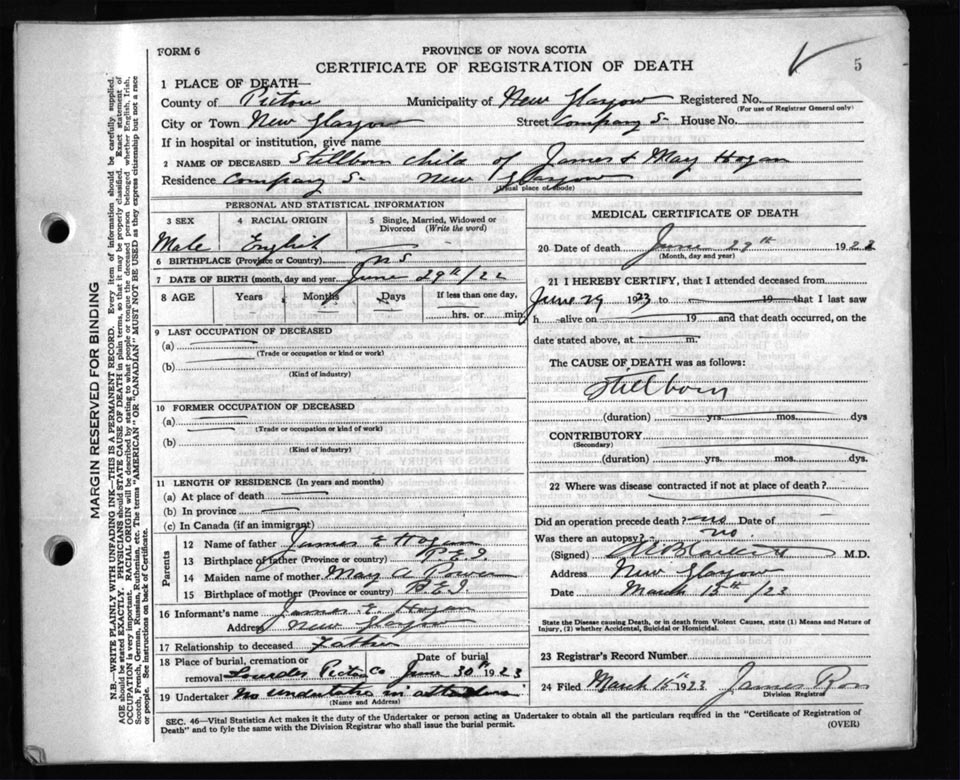 FORM 6
PROVINCE OF NOVA SCOTIA
CERTIFICATE OF REGISTRATION OF DEATH
5
1 PLACE OF DEATH—
County of Pictou Municipality of New Glasgow Registered No.
(For use of Registrar General only)
City or Town New Glasgow Street Company S- House No.
If in hospital or institution, give name
2 NAME OF DECEASED Stillborn child of James & May Hogan
Residence Company S- New Glasgow
(Usual place of abode)
PERSONAL AND STATISTICAL INFORMATION
3 SEX 4 RACIAL ORIGIN 5 Single, Married, Widowed or Divorced (Write the word)
Male English
6 BIRTHPLACE (Province or Country) N S
7 DATE OF BIRTH (month, day and year) June 29th/22
8 AGE Years Months Days If less than one day,
hrs. or min
9 LAST OCCUPATION OF DECEASED
(a)
(Trade or occupation or kind or work)
(b)
(Kind of industry)
10 FORMER OCCUPATION OF DECEASED
(a)
(Trade or occupation or kind or work)
(b)
(Kind of industry)
11 LENGTH OF RESIDENCE (In years and months)
(a) At place of death
(b) In province
(c) In Canada (if an immigrant)
Parents
12 Name of father James E Hogan
13 Birthplace of father (Province or country) P.E.I.
14 Maiden name of mother May A Power
15 Birthplace of mother (Province or country) P.E.I.
16 Informant's name James E. Hogan
Address New Glasgow
17 Relationship to deceased Father
18 Place of burial, cremation or removal Lourdes Pictou Co Date of burial June 30th 1923
19 Undertaker No undertaker in attendance
(Name and Address)
MEDICAL CERTIFICATE OF DEATH
20 Date of death June 29th 1922
(Month, day and year)
21 I HEREBY CERTIFY, that I attended deceased from
June 29 1923 to 19 that I last saw
h alive on 19 and that death occurred, on the
date stated above, at m.
The CAUSE OF DEATH was as follows:
Stillborn
(duration) yrs. mos. dys
CONTRIBUTORY
(Secondary)
(duration) yrs. mos. dys.
22 Where was disease contracted if not at place of death?
Did an operation precede death? no Date of
Was there an autopsy? no
(Signed) M.D.
Address New Glasgow
Date March 15th/23
State the Disease causing Death, or in death from Violent Causes, state (1) Means and Nature of
Injury, (2) whether Accidental, Suicidal or Homicidal.
23 Registrar's Record Number
24 Filed March 15th 1923 James Ross
Division Registrar
SEC. 46—Vital Statistics Act makes it the duty of the Undertaker or person acting as Undertaker to obtain all the particulars required in the "Certificate of Registration of
Death" and to fyle the same with the Division Registrar who shall issue the burial permit.
(OVER)
MARGIN RESERVED FOR BINDING
N.B.—WRITE PLAINLY WITH UNFADING INK—THIS IS A PERMANENT RECORD. Every item of information should be carefully supplied.
AGE should be stated EXACTLY. PHYSICIANS should STATE CAUSE OF DEATH in plain terms, so that it may be properly classified. Exact statement of
OCCUPATION is very important. RACIAL ORIGIN will be described by stating to what people or tongue the deceased person belonged whether English, Irish,
Scotch, French, German, Russian, Ruthenian, etc. The terms "AMERICAN" OR "CANADIAN" MUST NOT BE USED as they express citizenship but not a race
or people. See instructions on back of Certificate.